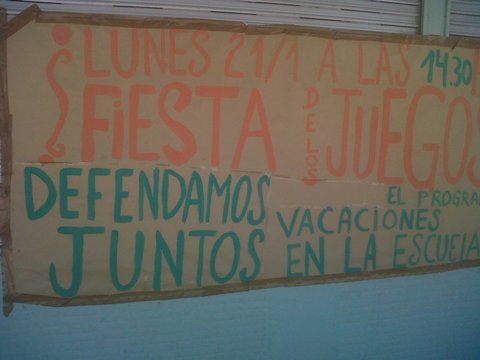 ¡LUNES 21/1 A LAS 14.30!
FiESTA DE LOS JUEGOS
DEFENDAMOS JUNTOS
EL PROGRA
VACACIONES
EN LA ESCUELA